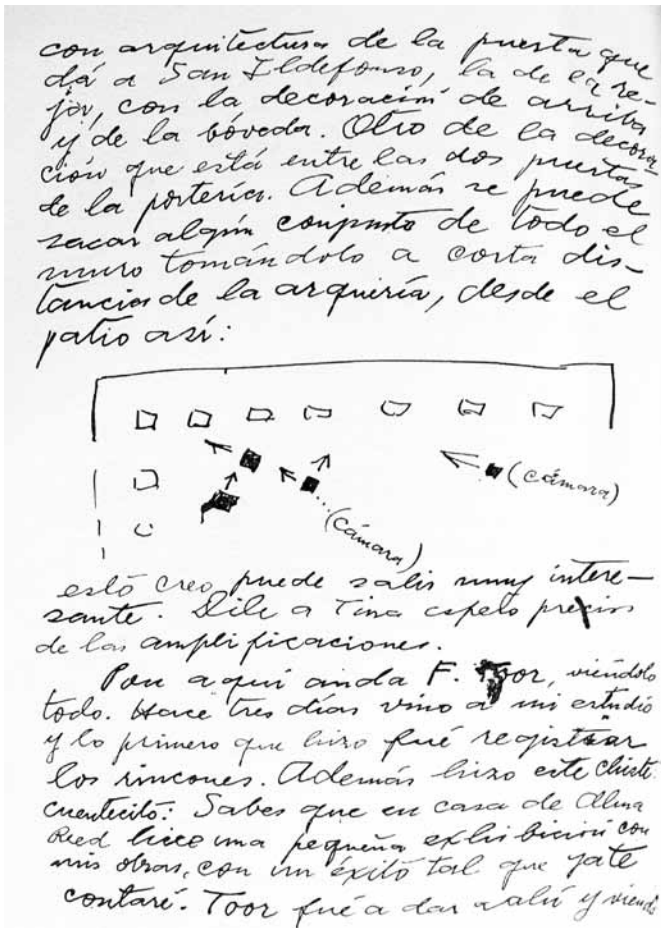 con arquitectura de la puerta que
dá a San Ildefonso, la de la re-
ja, con la decoración de arriba
y de la bóveda. Otro de la decora-
ción que está entre las dos puertas
de la portería. Además se puede
sacar algún conjunto de todo el
muro tomándolo a corta dis-
tancia de la arquería, desde el
patio así:
(cámara)
(cámara)
estó creo puede salir muy intere-
sante. Dile a Tina espero precios
de las amplificaciones.
Por aqui anda F. Toor, viéndolo
todo. Hace tres días vino a mi estudio
y lo primero que hizo fué registrar
los rincones. Además hizo este chiste.
cuentecito: Sabes que en casa de Alma
Reed hice una pequeña exhibición con
mis obras, con un éxito tal que ya te
contaré. Toor fué a dar alú y viendo